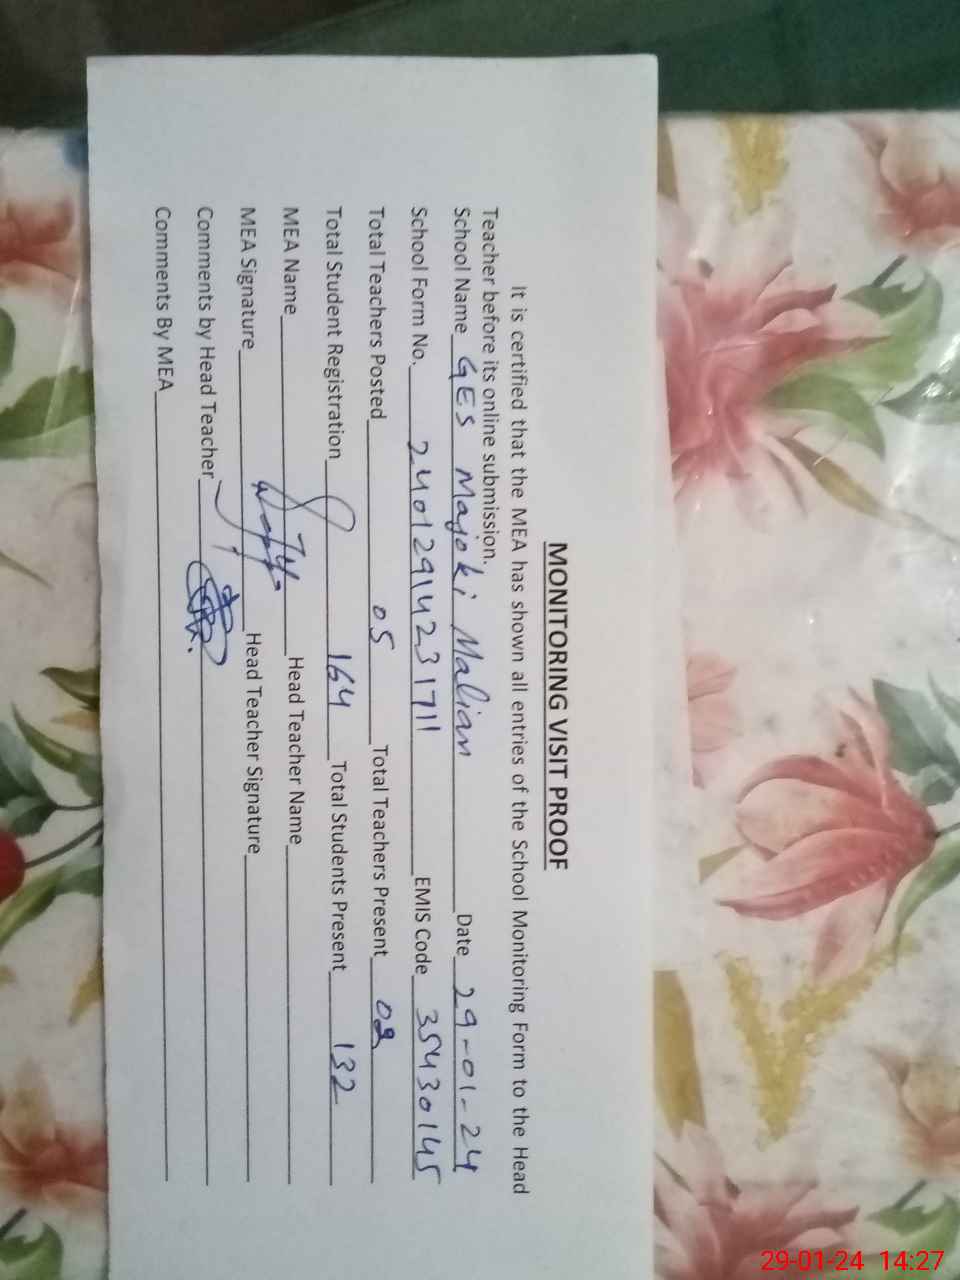 MONITORING VISIT PROOF
It is certified that the MEA has shown all entries of the School Monitoring Form to the Head
Teacher before its online submission.
School Name GES Majoki Malian Date 29-01-24
School Form No. 24012914231711 EMIS Code 35430145
Total Teachers Posted 05 Total Teachers Present 02
Total Student Registration 164 Total Students Present 132
MEA Name Head Teacher Name
MEA Signature Head Teacher Signature
Comments by Head Teacher
Comments By MEA
29-01-24 14:27